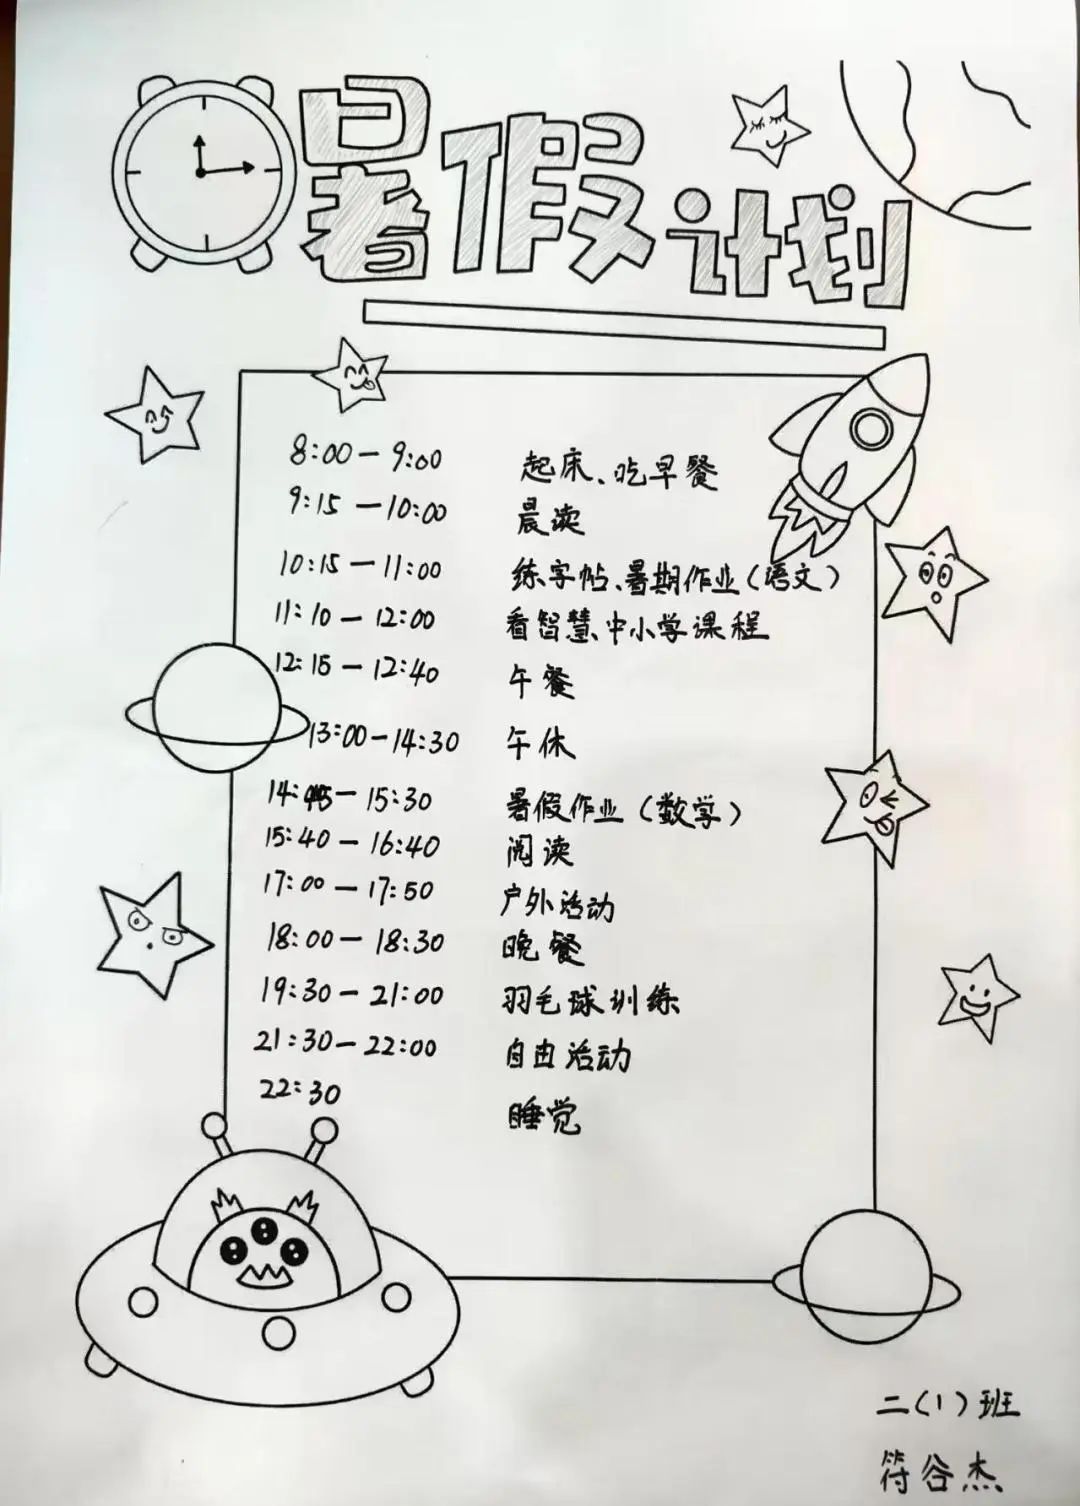 暑假计划
8:00-9:00 起床、吃早餐
9:15-10:00 晨读
10:15-11:00 练字帖、暑期作业(语文)
11:10-12:00 看智慧中小学课程
12:15-12:40 午餐
13:00-14:30 午休
14:45-15:30 暑假作业(数学)
15:40-16:40 阅读
17:00-17:50 户外活动
18:00-18:30 晚餐
19:30-21:00 羽毛球训练
21:30-22:00 自由活动
22:30 睡觉
二(1)班
符谷杰